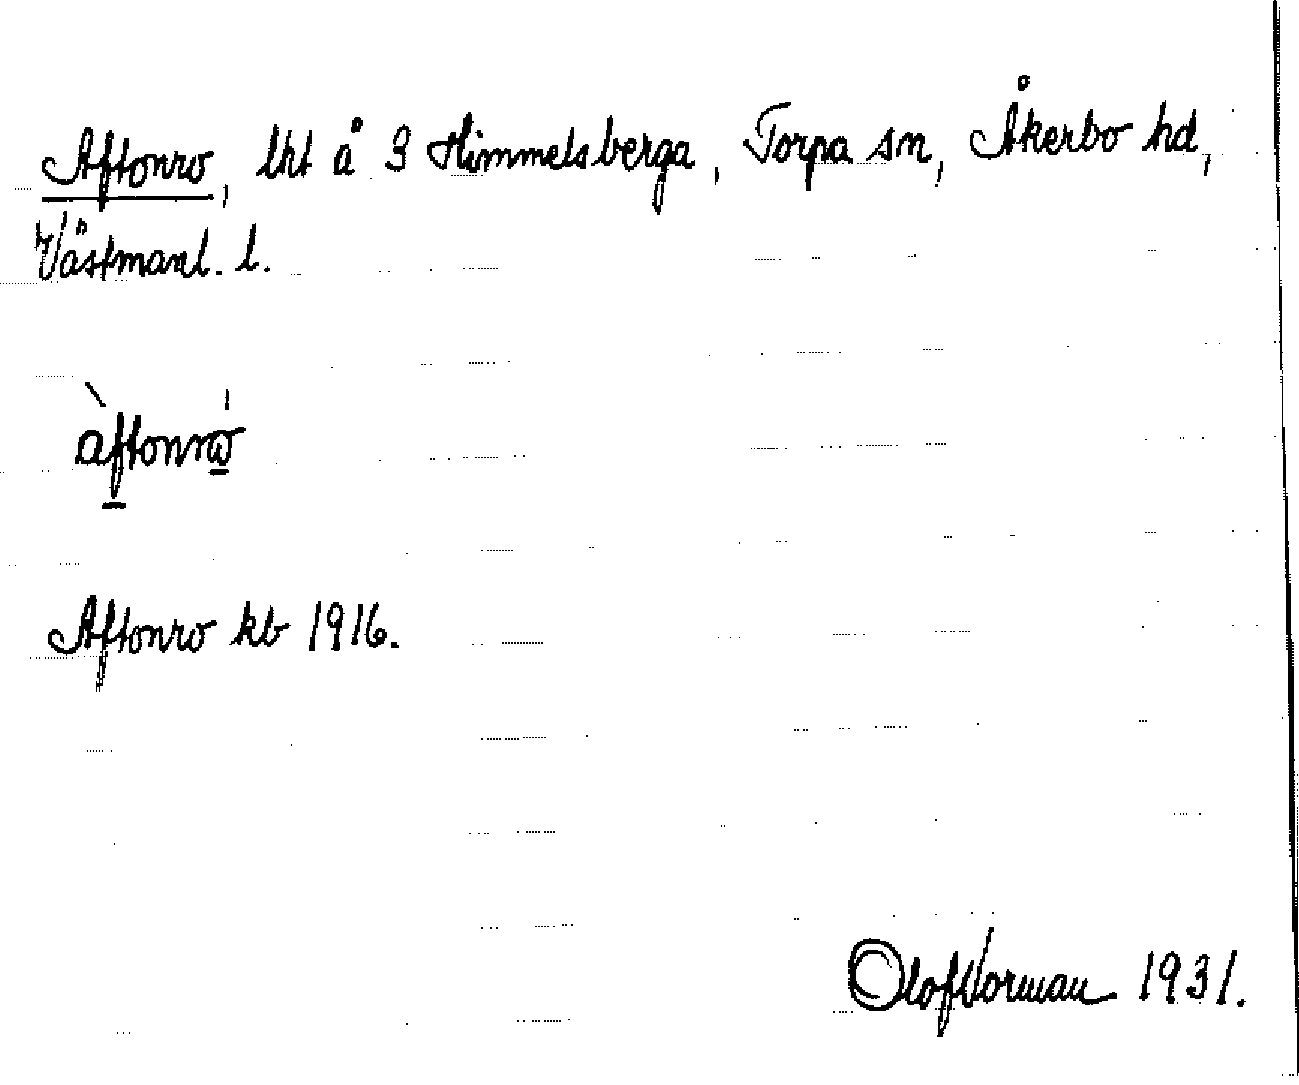 Aftonro, lht å 3 Himmelsberga, Torpa sn, Åkerbo hd,
Västmanl. l.
àftonrω
Aftonro kb 1916.
Olof Vorman 1931.